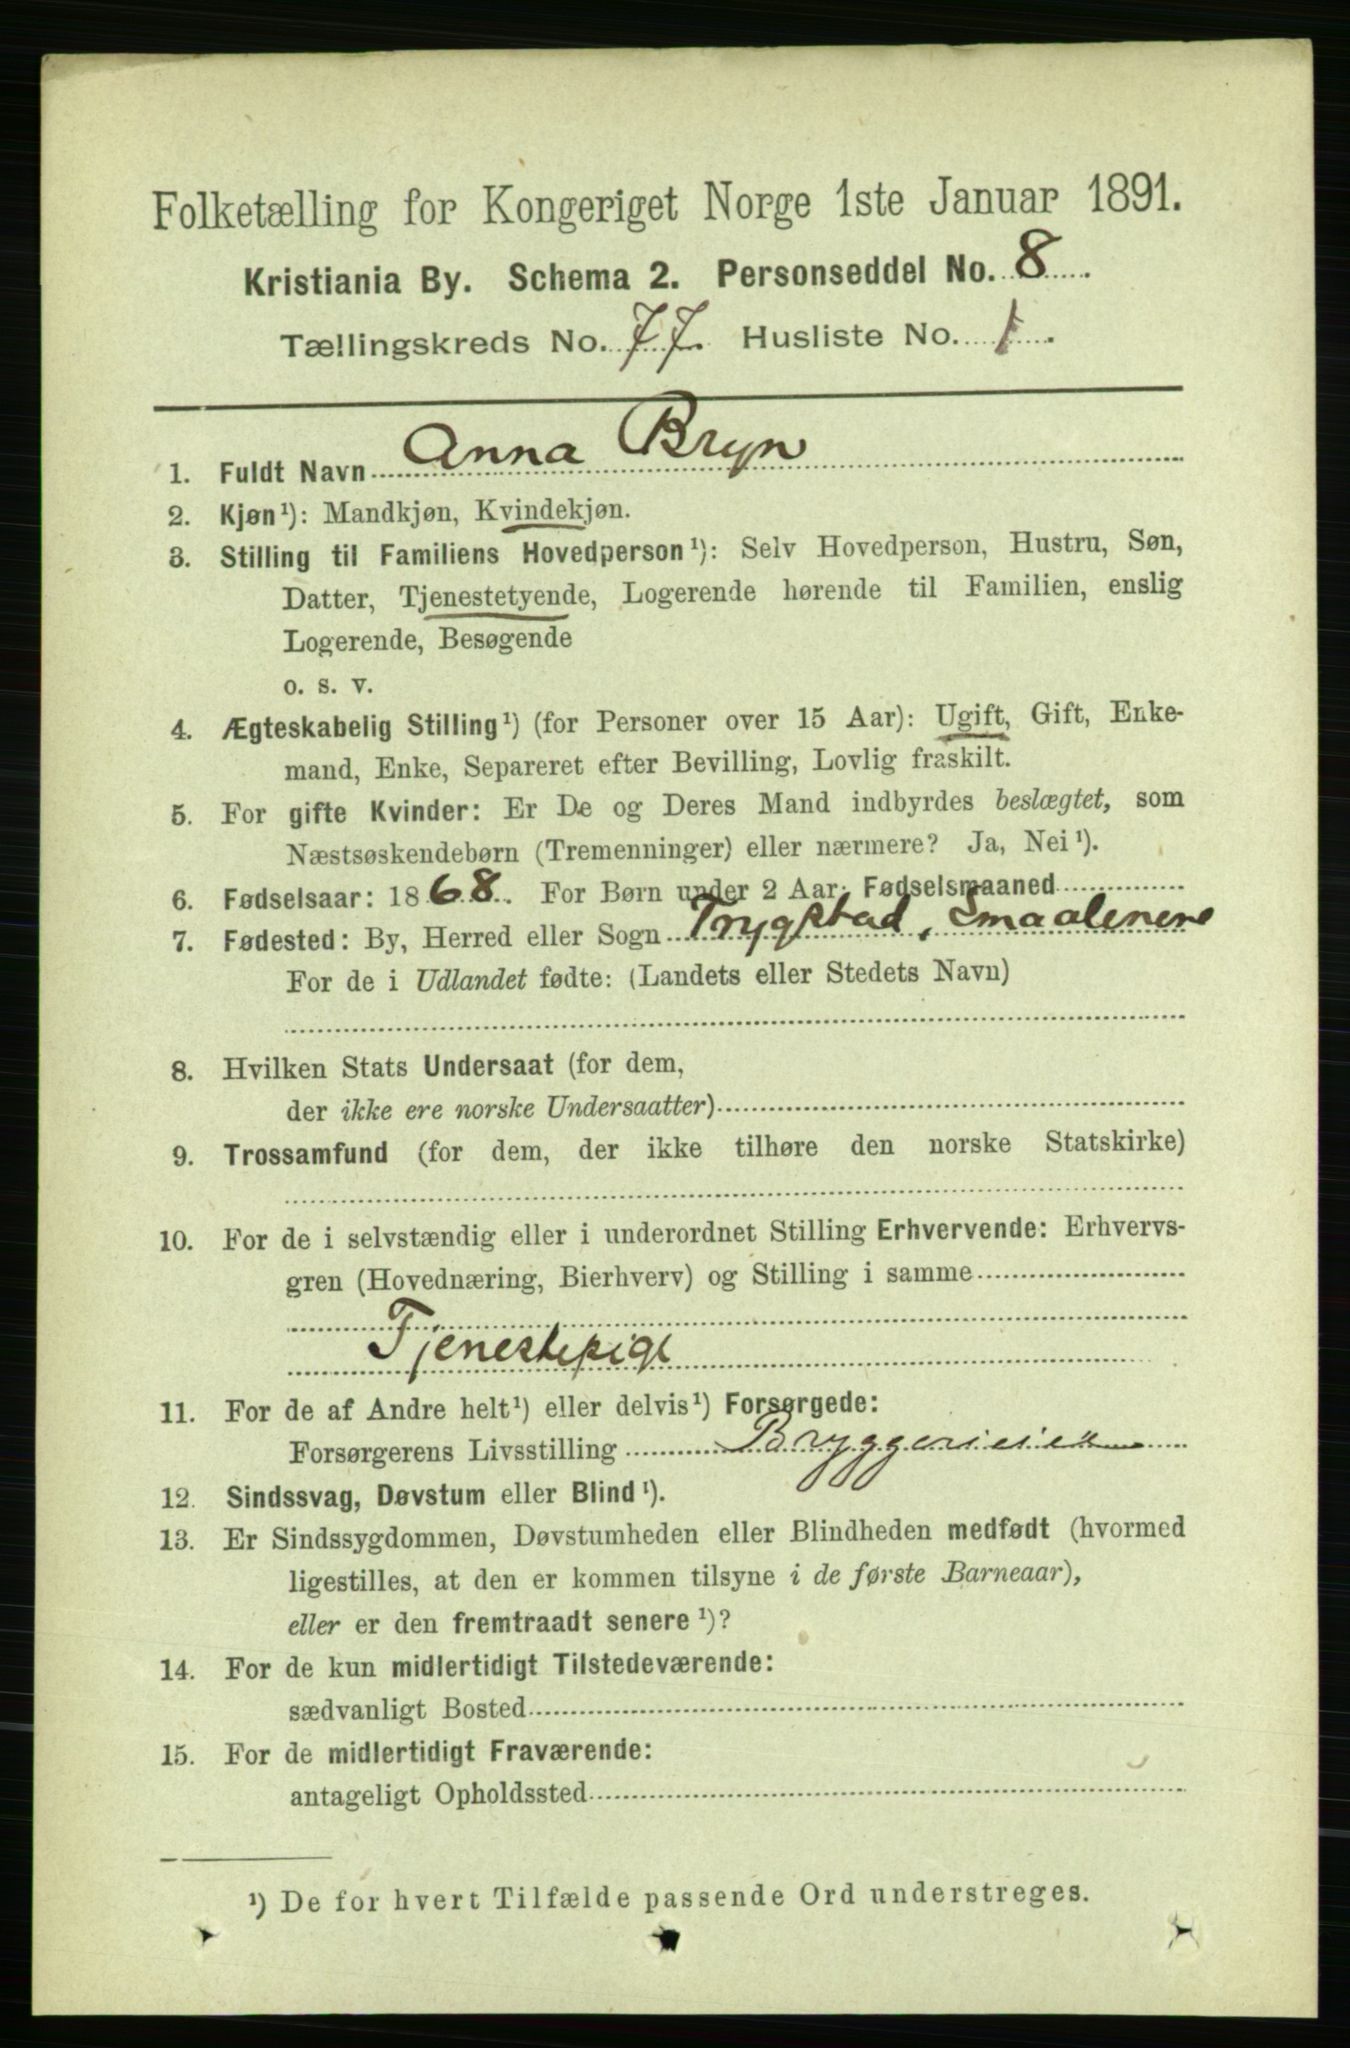 Folketælling for Kongeriget Norge 1ste Januar 1891.
Kristiania By. Schema 2. Personseddel No. 8.
Tællingskreds No. 77. Husliste No. 1.
1. Fuldt Navn Anna Bryn
2. Kjøn¹): Mandkjøn, Kvindekjøn.
3. Stilling til Familiens Hovedperson¹): Selv Hovedperson, Hustru, Søn,
Datter, Tjenestetyende, Logerende hørende til Familien, enslig
Logerende, Besøgende
o. s. v.
4. Ægteskabelig Stilling¹) (for Personer over 15 Aar): Ugift, Gift, Enke-
mand, Enke, Separeret efter Bevilling, Lovlig fraskilt.
5. For gifte Kvinder: Er De og Deres Mand indbyrdes beslægtet, som
Næstsøskendebørn (Tremenninger) eller nærmere? Ja, Nei¹).
6. Fødselsaar: 1868. For Børn under 2 Aar: Fødselsmaaned
7. Fødested: By, Herred eller Sogn Trygstad, Smaalenene
For de i Udlandet fødte: (Landets eller Stedets Navn)
8. Hvilken Stats Undersaat (for dem,
der ikke ere norske Undersaatter)
9. Trossamfund (for dem, der ikke tilhøre den norske Statskirke)
10. For de i selvstændig eller i underordnet Stilling Erhvervende: Erhvervs-
gren (Hovednæring, Bierhverv) og Stilling i samme
Tjenestepige
11. For de af Andre helt¹) eller delvis¹) Forsørgede:
Forsørgerens Livsstilling Bryggerieier
12. Sindssvag, Døvstum eller Blind¹).
13. Er Sindssygdommen, Døvstumheden eller Blindheden medfødt (hvormed
ligestilles, at den er kommen tilsyne i de første Barneaar),
eller er den fremtraadt senere¹)?
14. For de kun midlertidigt Tilstedeværende:
sædvanligt Bosted
15. For de midlertidigt Fraværende:
antageligt Opholdssted
¹) De for hvert Tilfælde passende Ord understreges.